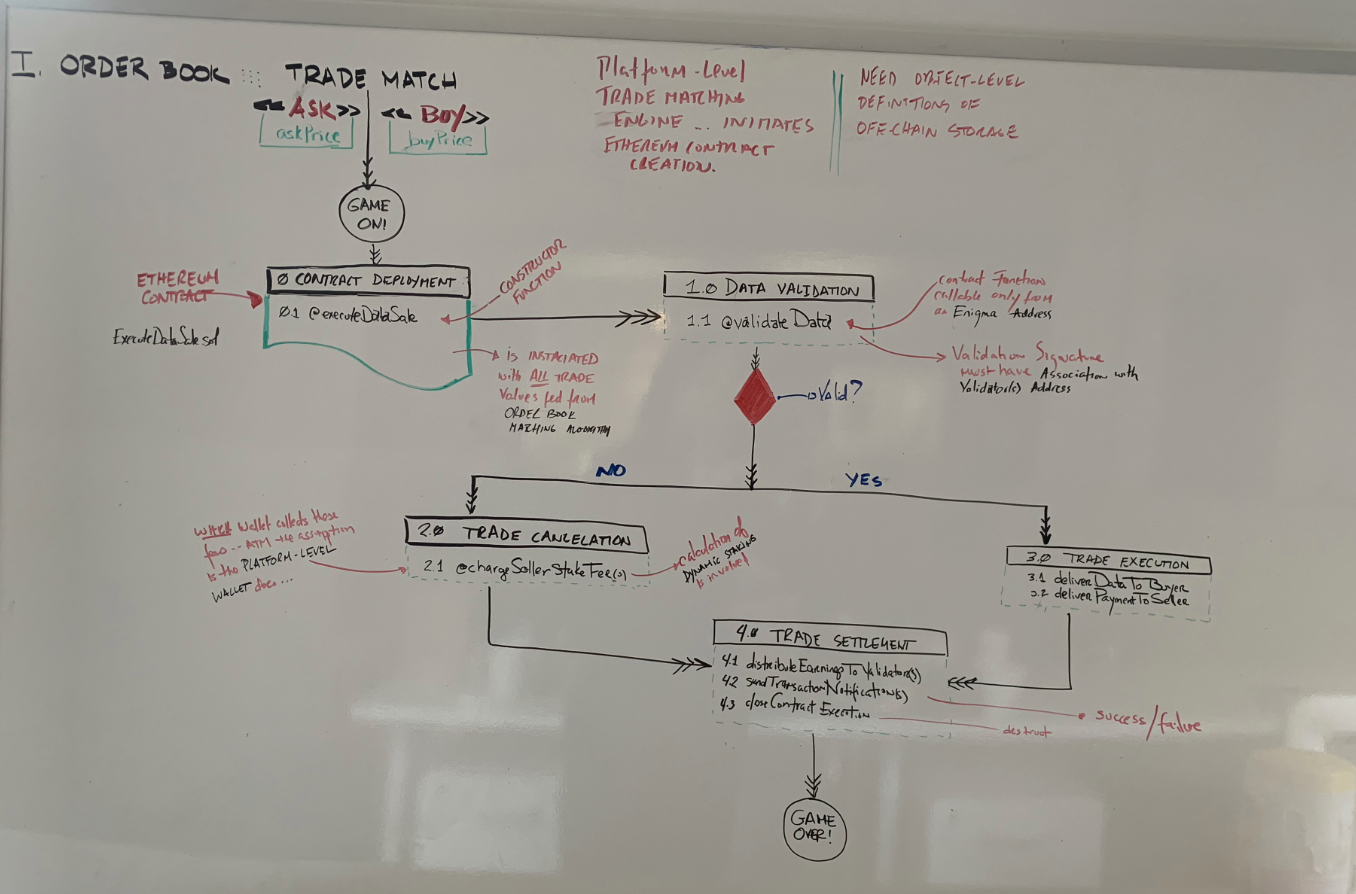 I. ORDER BOOK ::: TRADE MATCH
<< ASK >> << BUY >>
askPrice buyPrice
Platform-Level
TRADE MATCHING
ENGINE ... INITIATES
ETHEREUM CONTRACT
CREATION.
NEED OBJECT-LEVEL
DEFINITIONS OF
OFF-CHAIN STORAGE
GAME
ON!
ETHEREUM
CONTRACT
ExecuteDataSale.sol
0 CONTRACT DEPLOYMENT
0.1 @executeDataSale
CONSTRUCTOR
FUNCTION
is INSTACIATED
with ALL TRADE
Values fed from
ORDER BOOK
MATCHING ALGORITHM
1.0 DATA VALIDATION
1.1 @validateData
contract Function
callable only from
an Enigma Address
Validation Signature
must have Association with
Validator(s) Address
Valid?
NO
YES
WHICH Wallet collects these
fees .. ATM the assumption
is the PLATFORM-LEVEL
WALLET does ...
2.0 TRADE CANCELATION
2.1 @chargeSellerStakeFee(s)
calculation of
DYNAMIC STAKING
is involved
3.0 TRADE EXECUTION
3.1 deliverDataToBuyer
3.2 deliverPaymentToSeller
4.0 TRADE SETTLEMENT
4.1 distributeEarningsToValidator(s)
4.2 sendTransactionNotification(s)
4.3 closeContractExecution
success/failure
destruct
GAME
OVER!